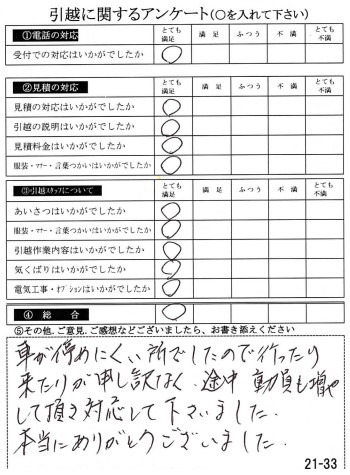 引越に関するアンケート(○を入れて下さい)
①電話の対応 とても満足 満足 ふつう 不満 とても不満
受付での対応はいかがでしたか
②見積の対応 とても満足 満足 ふつう 不満 とても不満
見積の対応はいかがでしたか
引越の説明はいかがでしたか
見積料金はいかがでしたか
服装・マナー・言葉づかいはいかがでしたか
③引越スタッフについて とても満足 満足 ふつう 不満 とても不満
あいさつはいかがでしたか
服装・マナー・言葉づかいはいかがでしたか
引越作業内容はいかがでしたか
気くばりはいかがでしたか
電気工事・オプションはいかがでしたか
④総合
⑤その他、ご意見、ご感想などございましたら、お書き添えください
車が停めにくい所でしたので行ったり
来たりが申し訳なく、途中動員も増や
して頂き対応して下さいました。
本当にありがとうございました。
21-33